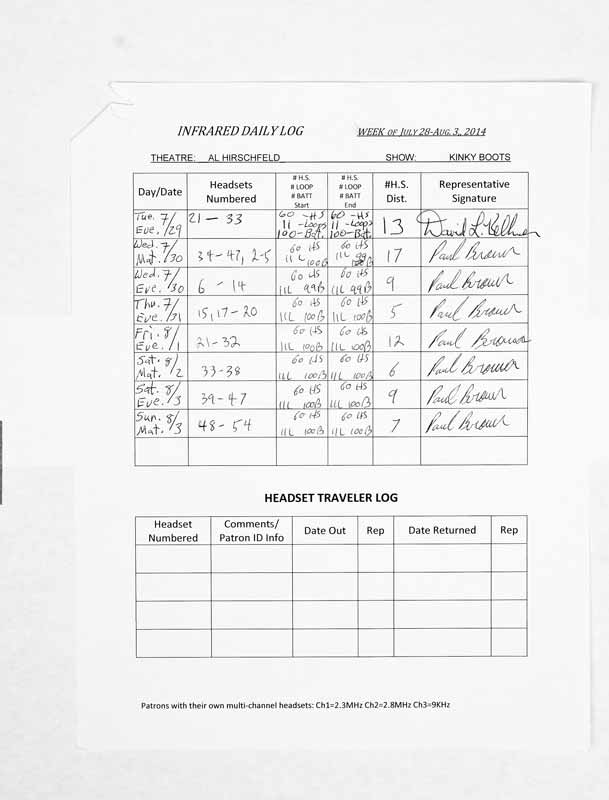 INFRARED DAILY LOG WEEK OF JULY 28-AUG. 3, 2014
THEATRE: AL HIRSCHFELD SHOW: KINKY BOOTS
Day/Date Headsets Numbered # H.S. # LOOP # BATT Start # H.S. # LOOP # BATT End #H.S. Dist. Representative Signature
Tue. 7/29 Eve. 21 - 33 60 -HS 11 -Loops 100-Bat. 60 -HS 11 -Loops 100-Bat. 13 David L. Kellman
Wed. 7/30 Mat. 34-47, 2-5 60 HS 11L 100B 60 HS 11L 99 B 17 Paul Brown
Wed. 7/30 Eve. 6 - 14 60 HS 11L 99B 60 HS 11L 99B 9 Paul Brown
Thu. 7/31 Eve. 15, 17-20 60 HS 11L 100B 60 HS 11L 100B 5 Paul Brown
Fri. 8/1 Eve. 21-32 60 HS 11L 100B 60 HS 11L 100B 12 Paul Brown
Sat. 8/2 Mat. 33-38 60 HS 11L 100B 60 HS 11L 100B 6 Paul Brown
Sat. 8/3 Eve. 39-47 60 HS 11L 100B 60 HS 11L 100B 9 Paul Brown
Sun. 8/3 Mat. 48-54 60 HS 11L 100B 60 HS 11L 100B 7 Paul Brown
HEADSET TRAVELER LOG
Headset Numbered Comments/ Patron ID Info Date Out Rep Date Returned Rep
Patrons with their own multi-channel headsets: Ch1=2.3MHz Ch2=2.8MHz Ch3=9KHz